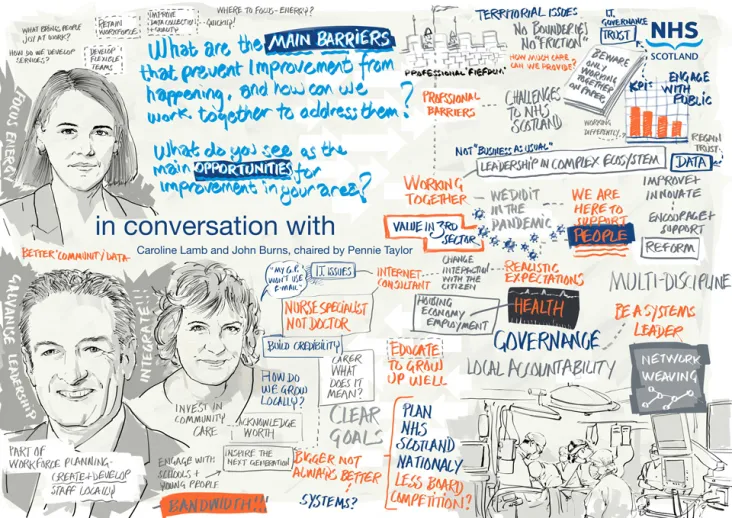 WHERE TO FOCUS - ENERGY?
WHAT BRINGS PEOPLE
JOY AT WORK?
RETAIN
WORKFORCE
IMPROVE
DATA COLLECTION
+ QUALITY
QUICKLY!
HOW DO WE DEVELOP
SERVICES?
DEVELOP
FLEXIBLE
TEAMS
FOCUS ENERGY
What are the MAIN BARRIERS
that prevent improvement from
happening, and how can we
work together to address them?
What do you see as the
main OPPORTUNITIES for
improvement in your area?
in conversation with
Caroline Lamb and John Burns, chaired by Pennie Taylor
TERRITORIAL ISSUES
NO BOUNDERIES
NO "FRICTION"
"PROFESSIONAL" FIEFDOM
HOW MUCH CARE
CAN WE PROVIDE?
PROFFSIONAL
BARRIERS
CHALLENGES
TO NHS
SCOTLAND
I.T.
GOVERNANCE
TRUST
NHS
SCOTLAND
BEWARE
ONLY
WORKING
TOGETHER
ON PAPER
KPI:
ENGAGE
WITH
PUBLIC
WORKING
DIFFERENTLY.?
REGAIN
TRUST
NOT "BUSINESS AS USUAL"
LEADERSHIP IN COMPLEX ECOSYSTEM
DATA
WORKING
TOGETHER
WE DID IT
IN THE
PANDEMIC
WE ARE
HERE TO
SUPPORT
PEOPLE
IMPROVE +
INNOVATE
ENCOURAGE +
SUPPORT
REFORM
VALUE IN 3RD
SECTOR
BETTER COMMUNITY DATA
GALVANISE LEADERSHIP
INTEGRATE!!!
"MY G.P.
WON'T USE
E-MAIL"
I.T. ISSUES
INTERNET
CONSULTANT
CHANGE
INTERACTION
WITH THE
CITIZEN
REALISTIC
EXPECTATIONS
MULTI-DISCIPLINE
NURSE SPECIALIST
NOT DOCTOR
HOUSING
ECONOMY
EMPLOYMENT
HEALTH
BE A SYSTEMS
LEADER
BUILD CREDIBILITY
GOVERNANCE
EDUCATE
TO GROW
UP WELL
LOCAL ACCOUNTABILITY
NETWORK
WEAVING
HOW DO
WE GROW
LOCALLY?
CARER
WHAT
DOES IT
MEAN?
INVEST IN
COMMUNITY
CARE
ACKNOWLEDGE
WORTH
CLEAR
GOALS
PLAN
NHS
SCOTLAND
NATIONALY
LESS BOARD
COMPETITION?
PART OF
WORKFORCE PLANNING -
CREATE + DEVELOP
STAFF LOCALLY
ENGAGE WITH
SCHOOLS +
YOUNG PEOPLE
INSPIRE THE
NEXT GENERATION
BIGGER NOT
ALWAYS BETTER
BANDWIDTH!!
SYSTEMS?